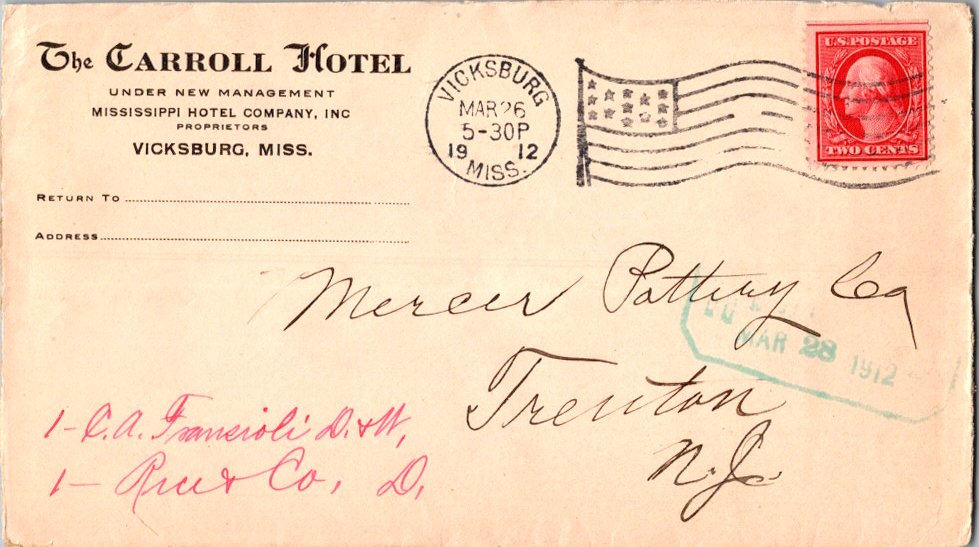 The CARROLL HOTEL
UNDER NEW MANAGEMENT
MISSISSIPPI HOTEL COMPANY, INC
PROPRIETORS
VICKSBURG, MISS.
RETURN TO
ADDRESS
VICKSBURG
MAR 26
5-30P
1912
MISS.
U.S. POSTAGE
TWO CENTS
Mercer Pottery Co
Trenton
N.J.
MAR 28 1912
1 - C. A. Francioli D. & W,
1 - Rice & Co, D,